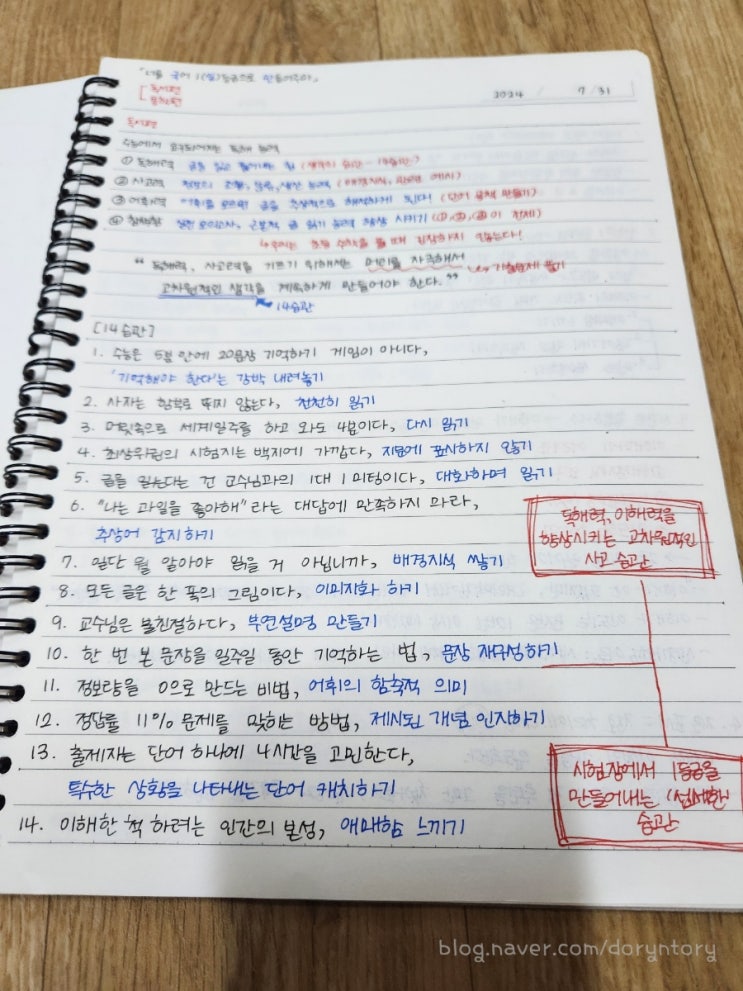 「너를 국어 1(일)등급으로 만들어주마」
독서편
문학편
2024 / 7/31
독서편
수능에서 요구되어지는 독해 능력
① 독해력 글을 읽고 풀어내는 힘 (생각의 습관 - 14습관)
② 사고력 정보의 조합, 응용, 생산 능력 (배경지식, 관련 예시)
③ 어휘력 어휘를 모르면 글을 추상적으로 해석하게 된다! (단어 공책 만들기)
④ 침착함 실전 모의고사, 근본적 글 읽기 능력 향상 시키기 (①,②,③이 전제)
수학을 풀 때 긴장하지 않는다!
"독해력, 사고력을 기르기 위해서는 머리를 자극해서 기출문제 풀기
고차원적인 생각을 계속하게 만들어야 한다."
14습관
[14습관]
1. 수능은 5분 안에 20문장 기억하기 게임이 아니다,
'기억해야 한다'는 강박 내려놓기
2. 사자는 함부로 뛰지 않는다, 천천히 읽기
3. 머릿속으로 세계일주를 하고 와도 4분이다, 다시 읽기
4. 최상위권의 시험지는 백지에 가깝다, 지문에 표시하지 않기
5. 글을 읽는다는 건 교수님과의 1대 1 미팅이다, 대화하며 읽기
6. "나는 과일을 좋아해"라는 대답에 만족하지 마라,
추상어 감지하기
독해력, 이해력을
향상시키는 고차원적인
사고 습관
7. 일단 뭘 알아야 읽을 거 아닙니까, 배경지식 쌓기
8. 모든 글은 한 폭의 그림이다, 이미지화 하기
9. 교수님은 불친절하다, 부연설명 만들기
10. 한 번 본 문장을 일주일 동안 기억하는 법, 문장 재구성하기
11. 정보량을 0으로 만드는 비법, 어휘의 함축적 의미
12. 정답률 11% 문제를 맞히는 방법, 제시된 개념 인지하기
13. 출제자는 단어 하나에 4시간을 고민한다,
특수한 상황을 나타내는 단어 캐치하기
시험장에서 1등급을
만들어내는 '섬세한'
습관
14. 이해한 척 하려는 인간의 본성, 애매함 느끼기
blog.naver.com/doryntory